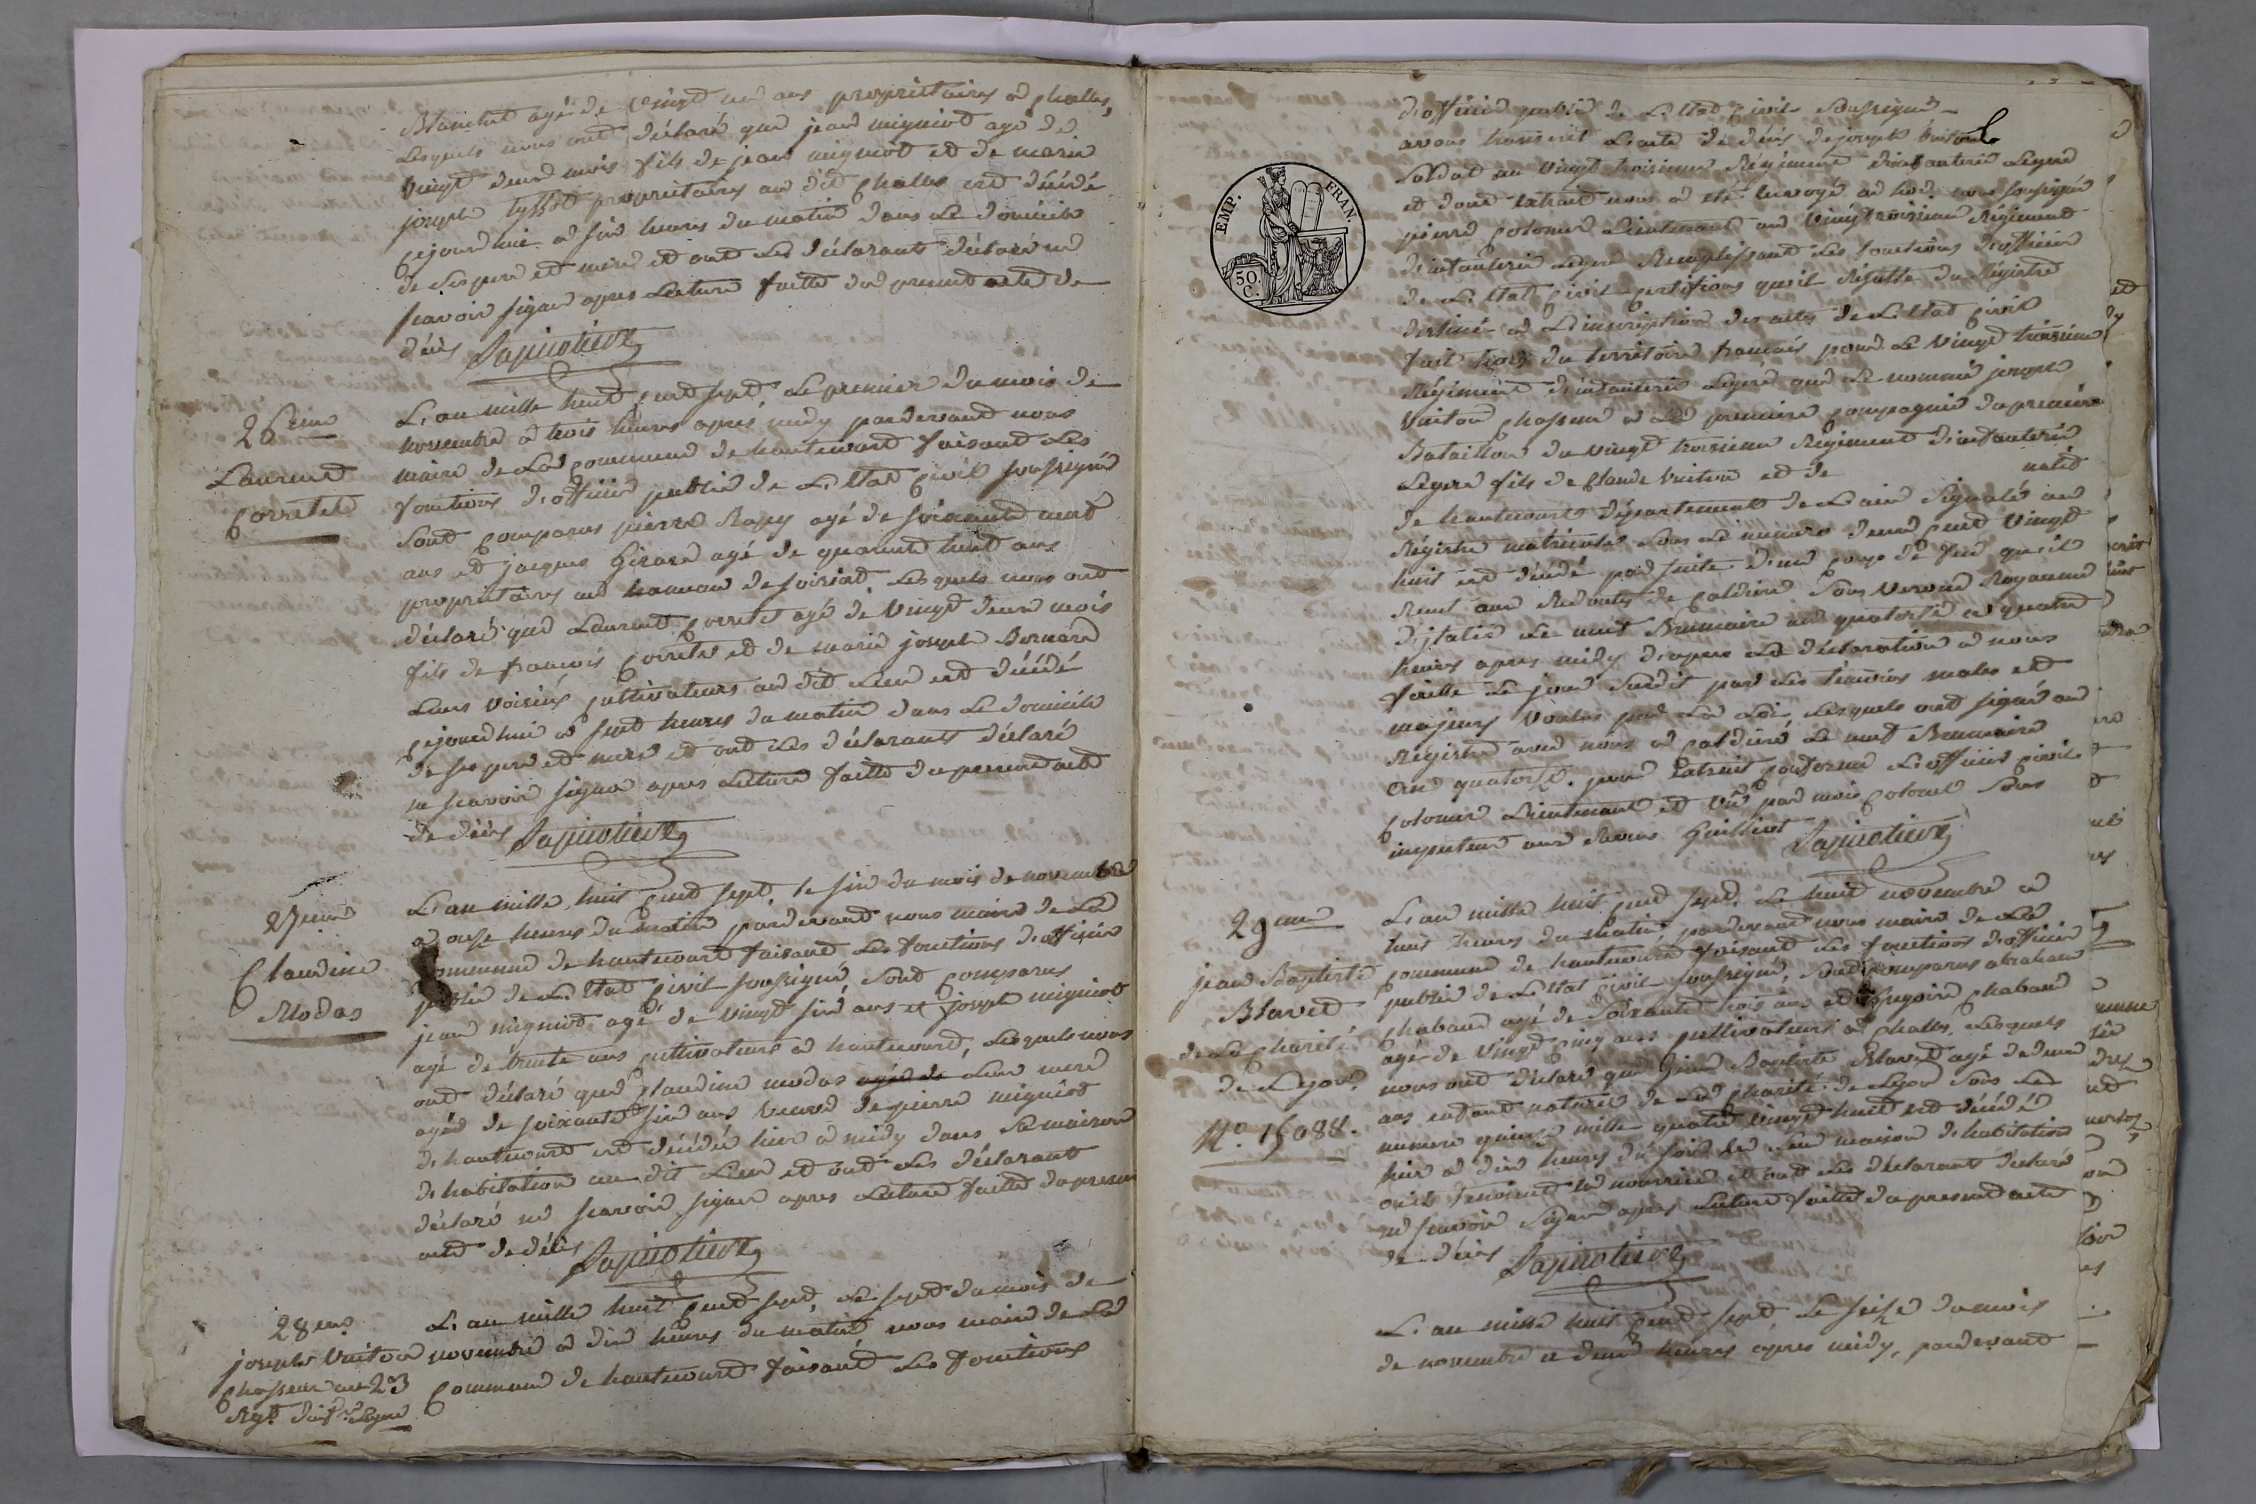 Blanchet agé de vingt un ans propriétaires a challes,
Lesquels nous ont déclaré que jean migniot age de
vingt deux mois fils de jean migniot et de marie
joseph tyssot propriétaires au dit Challes est décédé
cejourdhui a six heures du matin dans le domicile
de ses pere et mere et ont les déclarants déclaré ne
scavoir signer apres lecture faitte du present acte de
décès
26eme
Laurent
Corretet
L'an mille huit cent sept Le premier du mois de
novembre a trois heures après midy pardevant nous
maire de la commune de hautecourt faisant les
fonctions d'officier public de L'Etat Civil soussigné
sont comparus pierre Rapy agé de soixante neuf
ans et jacques Girard agé de quarente huit ans
propriétaires au hameau de soiriat Lesquels nous ont
déclaré que Laurent Corretet agé de vingt deux mois
fils de françois Corretet et de marie joseph Bernard
Leurs voisins cultivateurs au dit Lieu est décédé
cejourdhui a sept heures du matin dans le domicile
de ses pere et mere et ont les déclarants déclaré
ne scavoir signer apres lecture faitte du present acte
de décès
27eme
Claudine
Modas
L'an mille huit cent sept, le six du mois de novembre
a onze heures du matin pardevant nous maire de la
commune de hautecourt faisant les fonctions d'officier
public de L'Etat Civil soussigné sont comparus
jean migniot agé de vingt six ans et joseph migniot
agé de trente ans cultivateurs a hautecourt, Lesquels nous
ont déclaré que Claudine modas agée de Leur mere
agée de soixante six ans veuve de pierre migniot
de hautecourt est décédée hier a midy dans sa maison
d'habitation au dit Lieu et ont les déclarant
déclaré ne scavoir signer apres lecture faitte du present
acte de décès
28eme
joseph Vuiton
Chasseur au 23
Regt. d'infrie Legere
L'an mille huit cent sept, Le sept du mois de
novembre a dix heures du matin nous maire de la
Commune de hautecourt faisant les fonctions
EMP. FRAN.
50 C.
d'officier public de L'Etat Civil soussigné
avons transcrit L'acte de décès de joseph Vuiton
soldat au vingt troisieme Régiment d'infanterie Legere
et dont Extrait nous a été envoyé nous soussigné
pierre Colomer Lieutenant au vingt troisieme Régiment
d'infanterie Legere Remplissant les fonctions d'officier
de L'Etat Civil certifions qu'il Résulte du Régistre
destiné a L'inscription des actes de L'Etat Civil
fait hors du territoire francais pour Le vingt troisieme
Régiment d'infanterie Legere que Le nommé joseph
Vuiton Chasseur a La premiere Compagnie du premier
Bataillon du vingt troisieme Régiment d'infanterie
Legere fils de Claude Vuiton et de natif
de hautecourt département de L'ain Signalé au
Régistre matricule sous Le numéro deux cent vingt
huit est décédé par suite d'un coup de feu qu'il
Recut aux Redoutes de Caldiero sous Verone Royaume
d'italie Le neuf Brumaire an quatorze a quatre
heures apres midy d'apres La déclaration a nous
faitte Le jour susdit par Les témoins males et
majeurs voulus par La Loi Lesquels ont signé au
Régistre avec nous a Caldiero Le neuf Brumaire
an quatorze. pour Extrait conforme L'officier civil
Colomer Lieutenant et Vu par moi Colonel Sous
inspecteur aux Revues
29eme
jean Baptiste
Blavet
de La Charité
de Lyon
No. 15088.
L'an mille huit cent sept, Le huit novembre a
huit heures du matin pardevant nous maire de La
commune de hautecourt faisant les fonctions d'officier
public de L'Etat Civil soussigné, sont comparus abraham
Chaband agé de soixante trois ans et Grégoire Chaband
agé de vingt cinq ans cultivateurs a Challes, Lesquels
nous ont déclaré que jean Baptiste Blavet agé de deux
ans enfant naturel de La charité de Lyon sous Le
numero quinze mille quatre vingt huit est décédé
hier a dix heures du soir en Leur maison d'habitation
ou ils Tenoient en nourrice et ont les déclarants déclaré
ne scavoir Signer apres Lecture faitte du present acte
de décès
L'an mille huit cent sept, Le seize du mois
de novembre a deux heures apres midy, pardevant